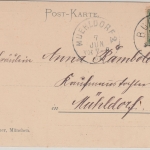 POST-KARTE.
MUEHLDORF 2
7
JUN
Fräulein Anna Rambold
Kaufmannstochter
in
Mühldorf.
München.